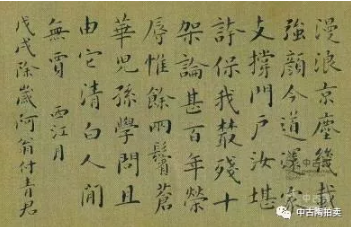 漫浪京塵幾載
強顏今道還家
支撐門户汝堪
誇保我叢殘十
架論甚百年榮
辱惟餘兩鬢蒼
華兒孫學問且
由它清白人間
無賈 西江月
戊戌除歲阿翁付青君
中古陶拍卖